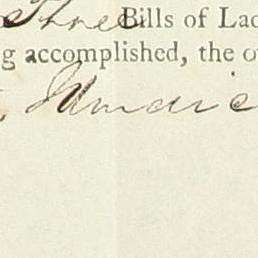 Three Bills of Lad
g accomplished, the o
Jamaica